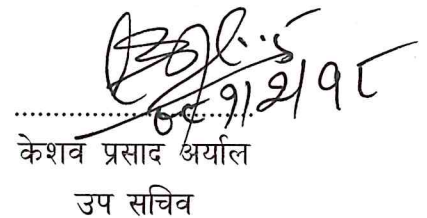 ....................
केशव प्रसाद अर्याल
उप सचिव